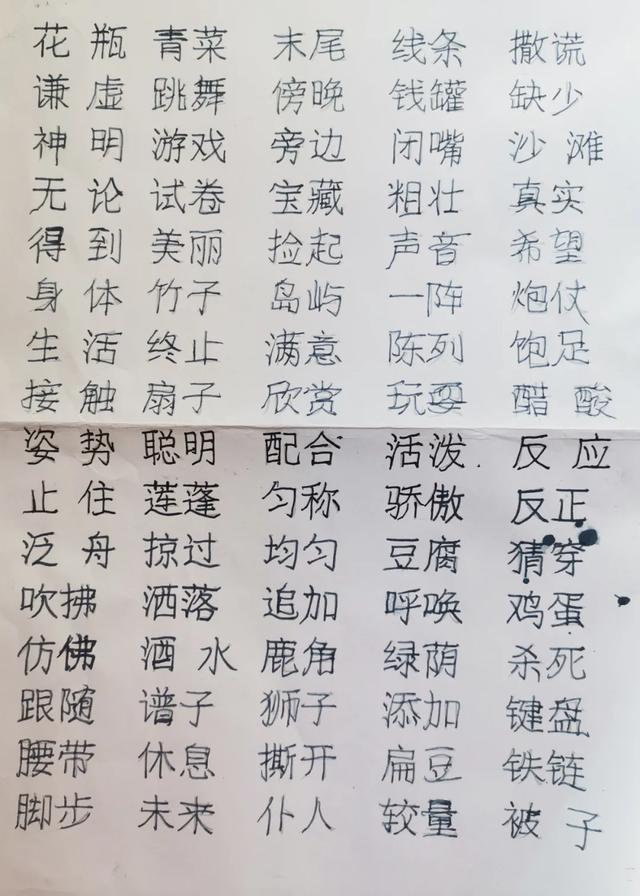 花瓶 青菜 末尾 线条 撒谎
谦虚 跳舞 傍晚 钱罐 缺少
神明 游戏 旁边 闭嘴 沙滩
无论 试卷 宝藏 粗壮 真实
得到 美丽 捡起 声音 希望
身体 竹子 岛屿 一阵 炮仗
生活 终止 满意 陈列 饱足
接触 扇子 欣赏 玩耍 醋酸
姿势 聪明 配合 活泼 反应
止住 莲蓬 匀称 骄傲 反正
泛舟 掠过 均匀 豆腐 猜穿
吹拂 洒落 追加 呼唤 鸡蛋
仿佛 酒水 鹿角 绿荫 杀死
跟随 谱子 狮子 添加 键盘
腰带 休息 撕开 扁豆 铁链
脚步 未来 仆人 较量 被子